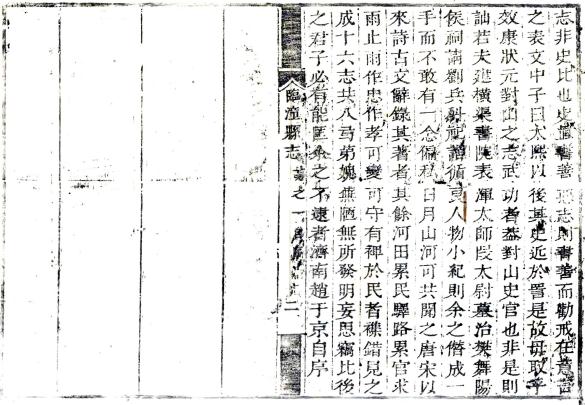 志非史比也史書善惡志則書善而勸戒在意言
之表文中子曰太熙以後其史近於晉是故毋取乎
效康狀元對山之志武功者蓋對山史官也非是則
訕若夫建橫渠書院表渾太師段太尉墓治樊舞陽
侯祠請劉兵祠譜循吏人物小紀則余之僭成一
手而不敢有一念偏私日月山河可共聞之唐宋以
來詩古文辭錄其著者其餘河田累民驛路累官求
雨止雨作忠作孝可變可守有裨於民者錯見之
成十六志共八弓第媿蕪陋無所發明妄思竊比後
之君子必有能匡余之不逮者濟南趙于京自序
臨潼縣志 之一 二